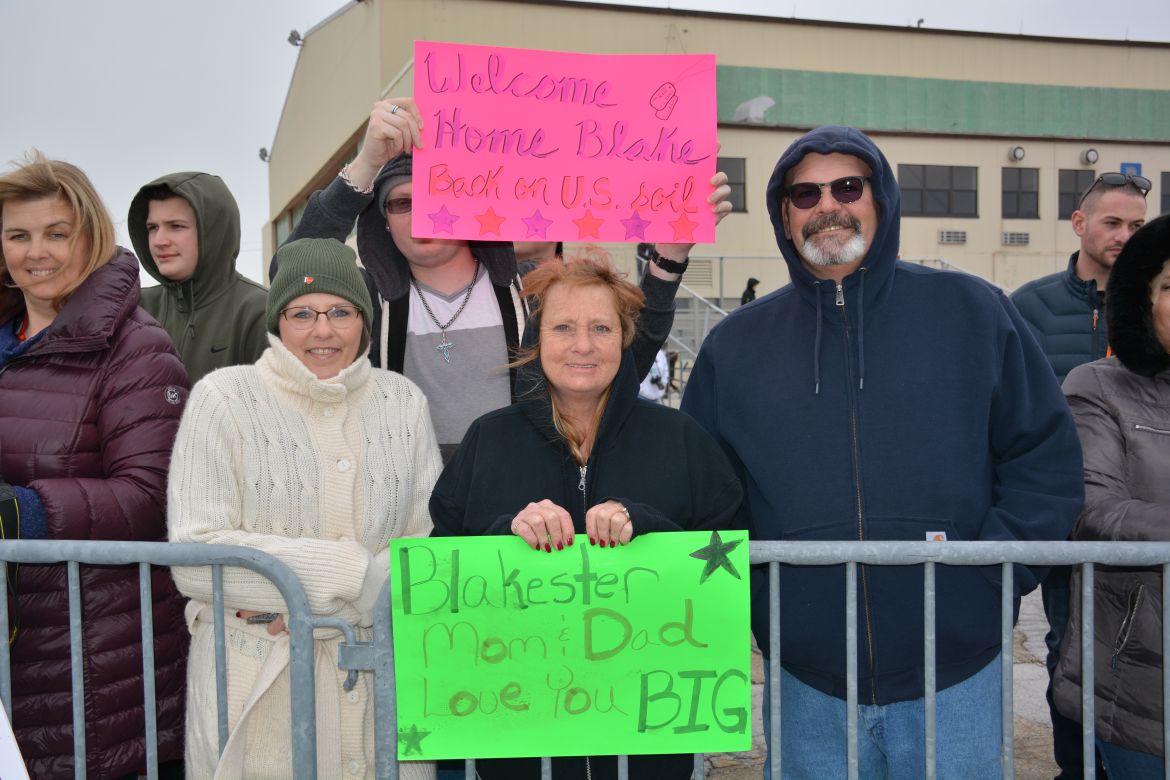 Welcome
Home Blake
Back on U.S. soil
Blakester
Mom & Dad
Love You BIG